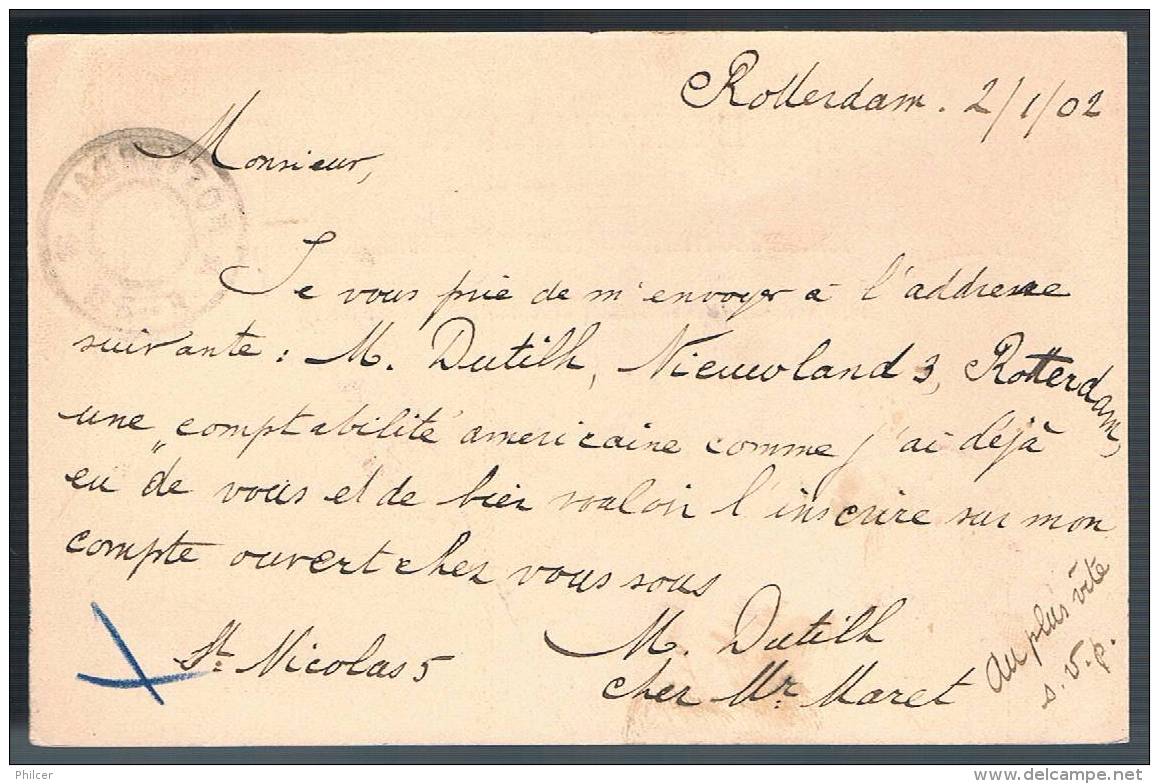 Rotterdam. 2/1/02
Monsieur,
Je vous prie de m'envoyer à l'addresse
suivante: M. Dutilh, Nieuwland 3, Rotterdam,
une "comptabilité américaine comme j'ai déjà
eu" de vous et de bien vouloir l'inscrire sur mon
compte ouvert chez vous sous
M. Dutilh
St. Nicolas 5
chez Mr Maret
au plus vite
s.v.p.
Philcer
www.delcampe.net